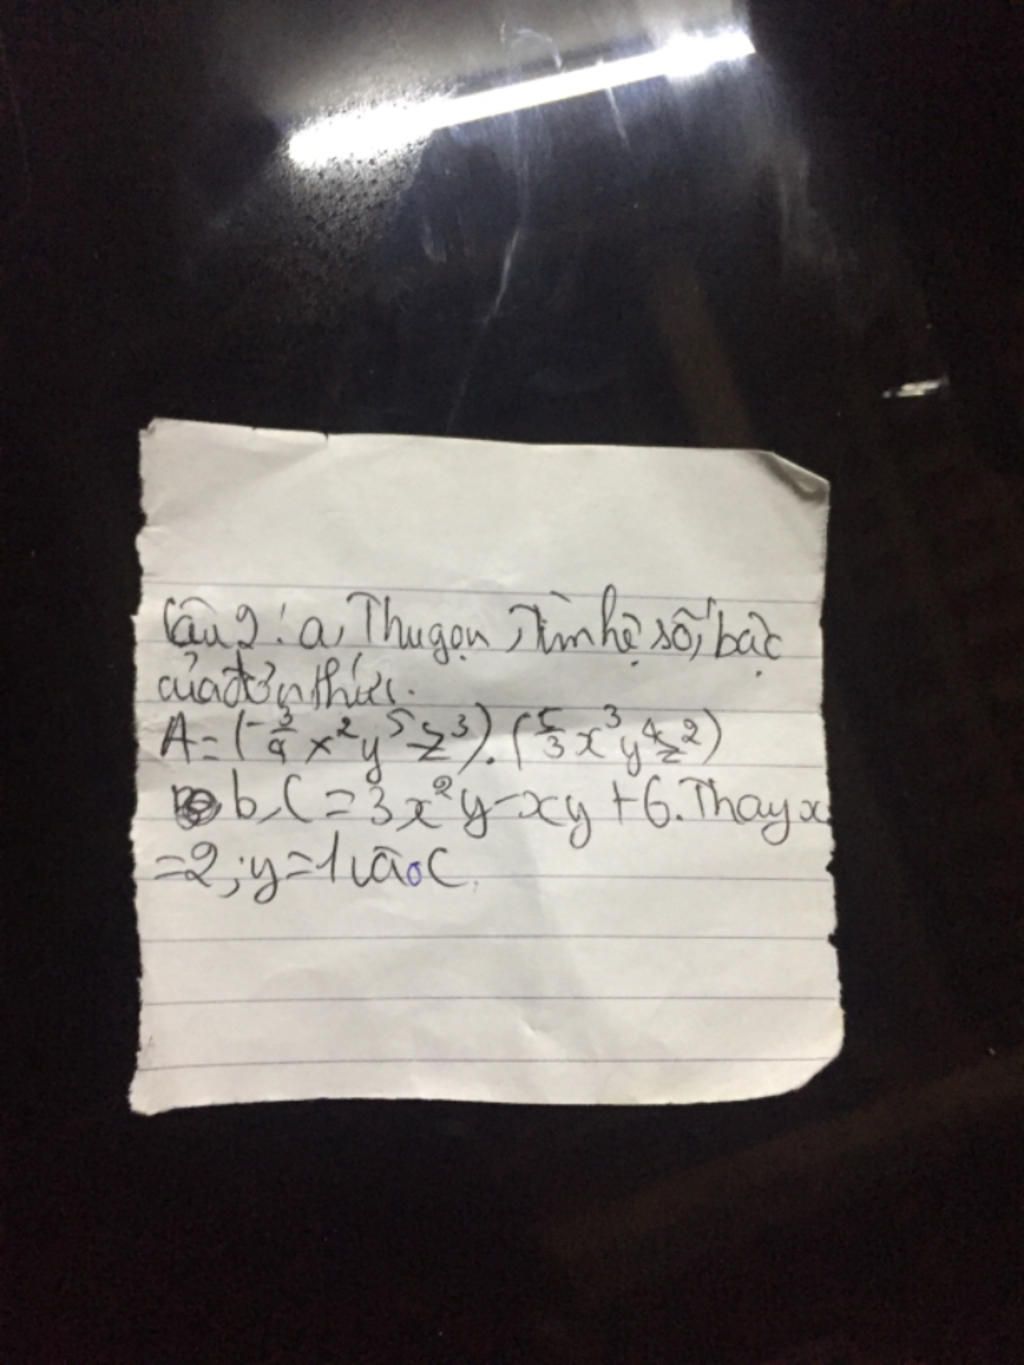 Câu 2: a, Thu gọn, tìm hệ số, bậc
của đơn thức.
A = (-3/4 x²y⁵z³).(5/3 x³y⁴z²)
b, C = 3x²y - xy + 6. Thay x
= 2; y = 1 vào C.